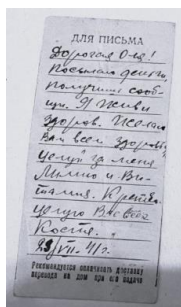 ДЛЯ ПИСЬМА
Дорогая О-ва!
Посылаю деньги
получишь сооб-
щи. Я жив и
здоров. Желаю
Вам всем здоровья
Целуй за меня
Милю и Ви-
талия. Крепко
целую Вас всех
Костя.
29/VII-41г.
Рекомендуется оплачивать доставку
перевода на дом при его подаче